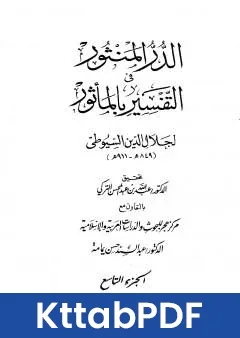 الدر المنثور
في
التفسير بالمأثور
لجلال الدين السيوطي
(٨٤٩هـ - ٩١١هـ)
تحقيق
الدكتور عبد الله بن عبد المحسن التركي
بالتعاون مع
مركز هجر للبحوث والدراسات العربية والإسلامية
الدكتور عبد السند حسن يمامة
الجزء التاسع
KttabPDF